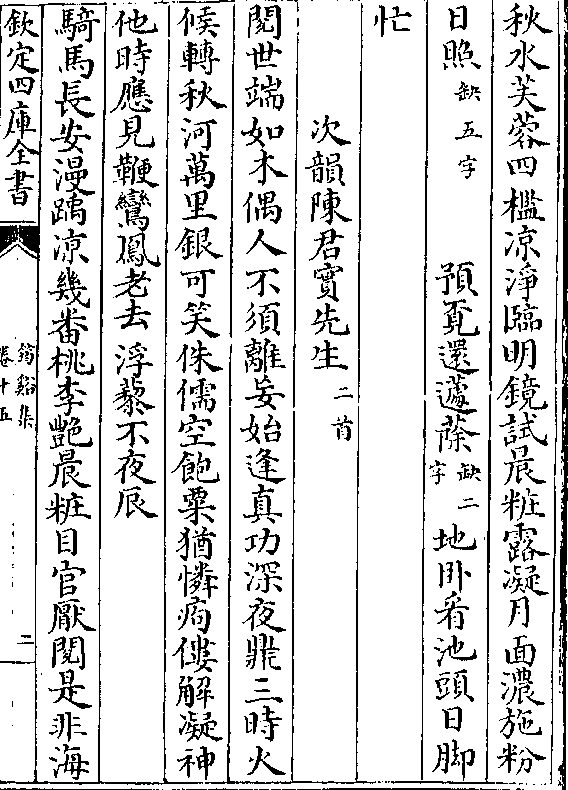 秋水芙蓉四檻凉淨臨明鏡試晨粧露凝月面濃施粉
日照缺五字預覔還蘧蒢缺二字地卧看池頭日脚
忙
次韻陳君實先生二首
閱世端如木偶人不須離妄始逢真功深夜鼎三時火
候轉秋河萬里銀可笑侏儒空飽粟猶憐痀僂解凝神
他時應見鞭鸞鳳老去浮藜不夜辰
騎馬長安漫踽凉幾番桃李艷晨粧目官厭閱是非海
欽定四庫全書
筠谿集
卷十五
二